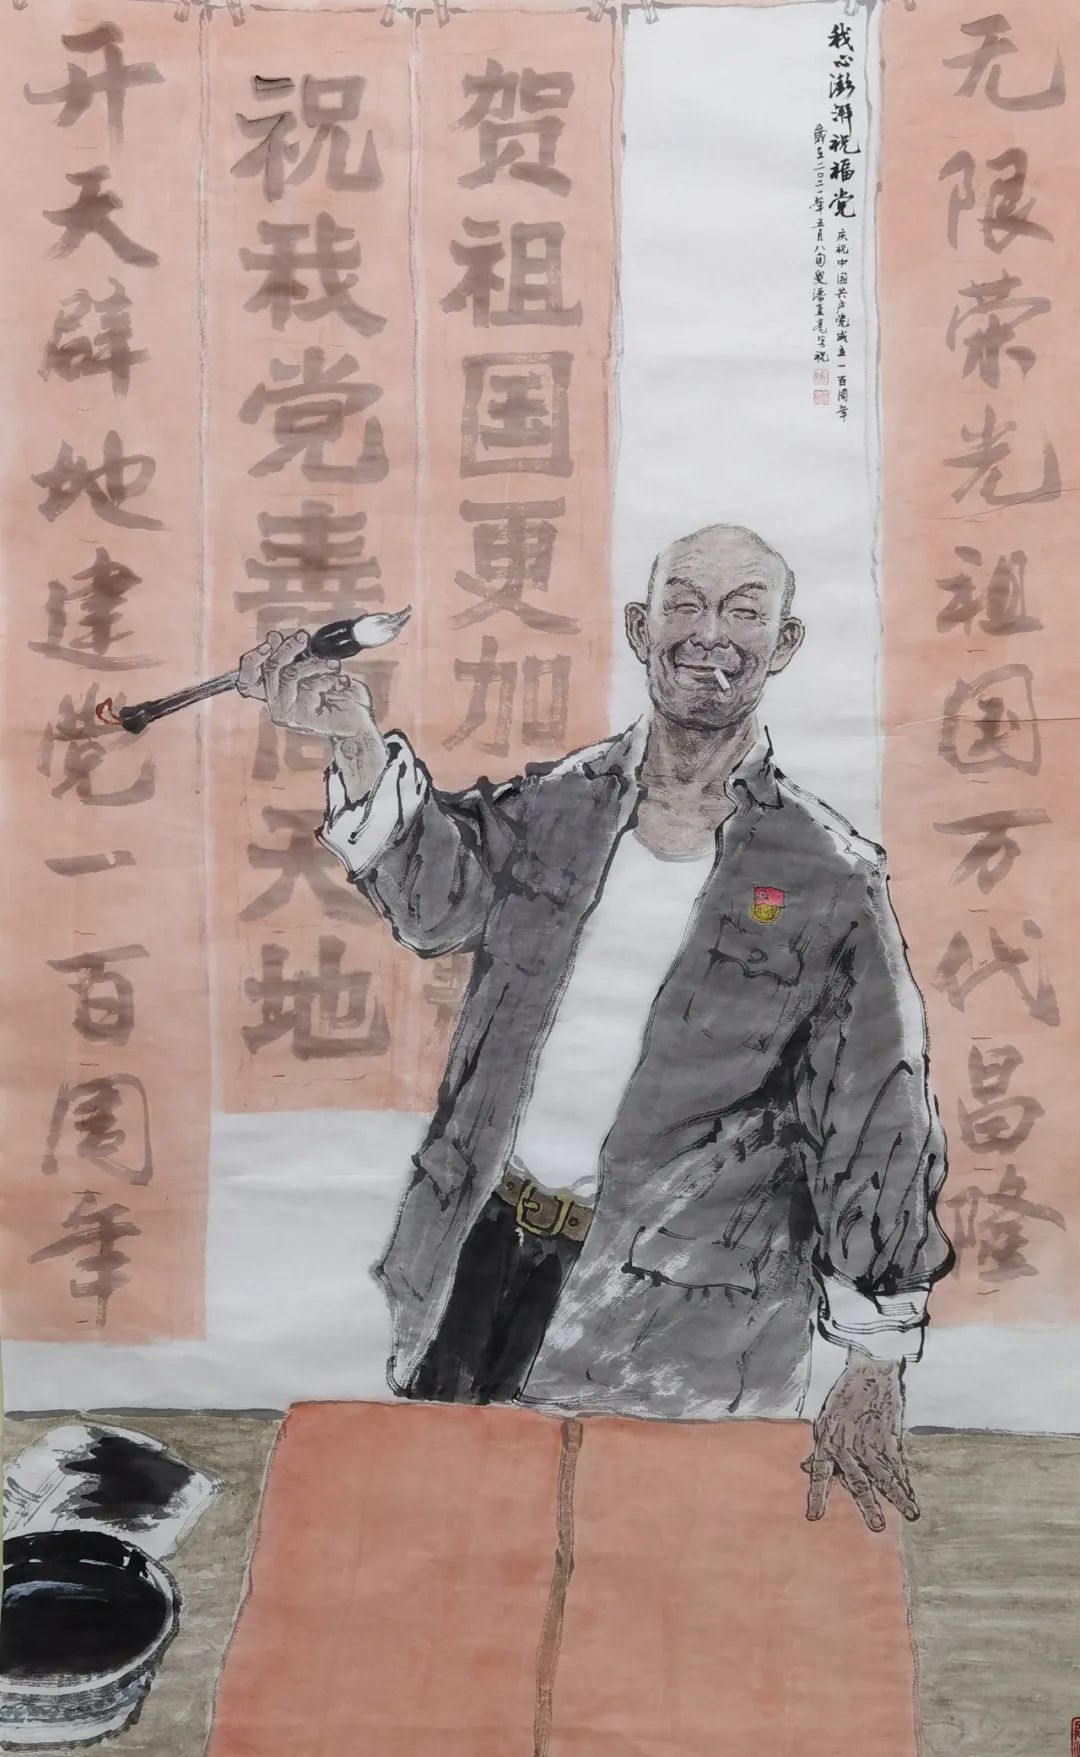 无限荣光祖国万代昌隆
我心澎湃祝福党 庆祝中国共产党成立一百周年
歲在二〇二一年五月八旬叟潘直亮写祝
贺祖国更加
祝我党喜天地
开天辟地建党一百周年